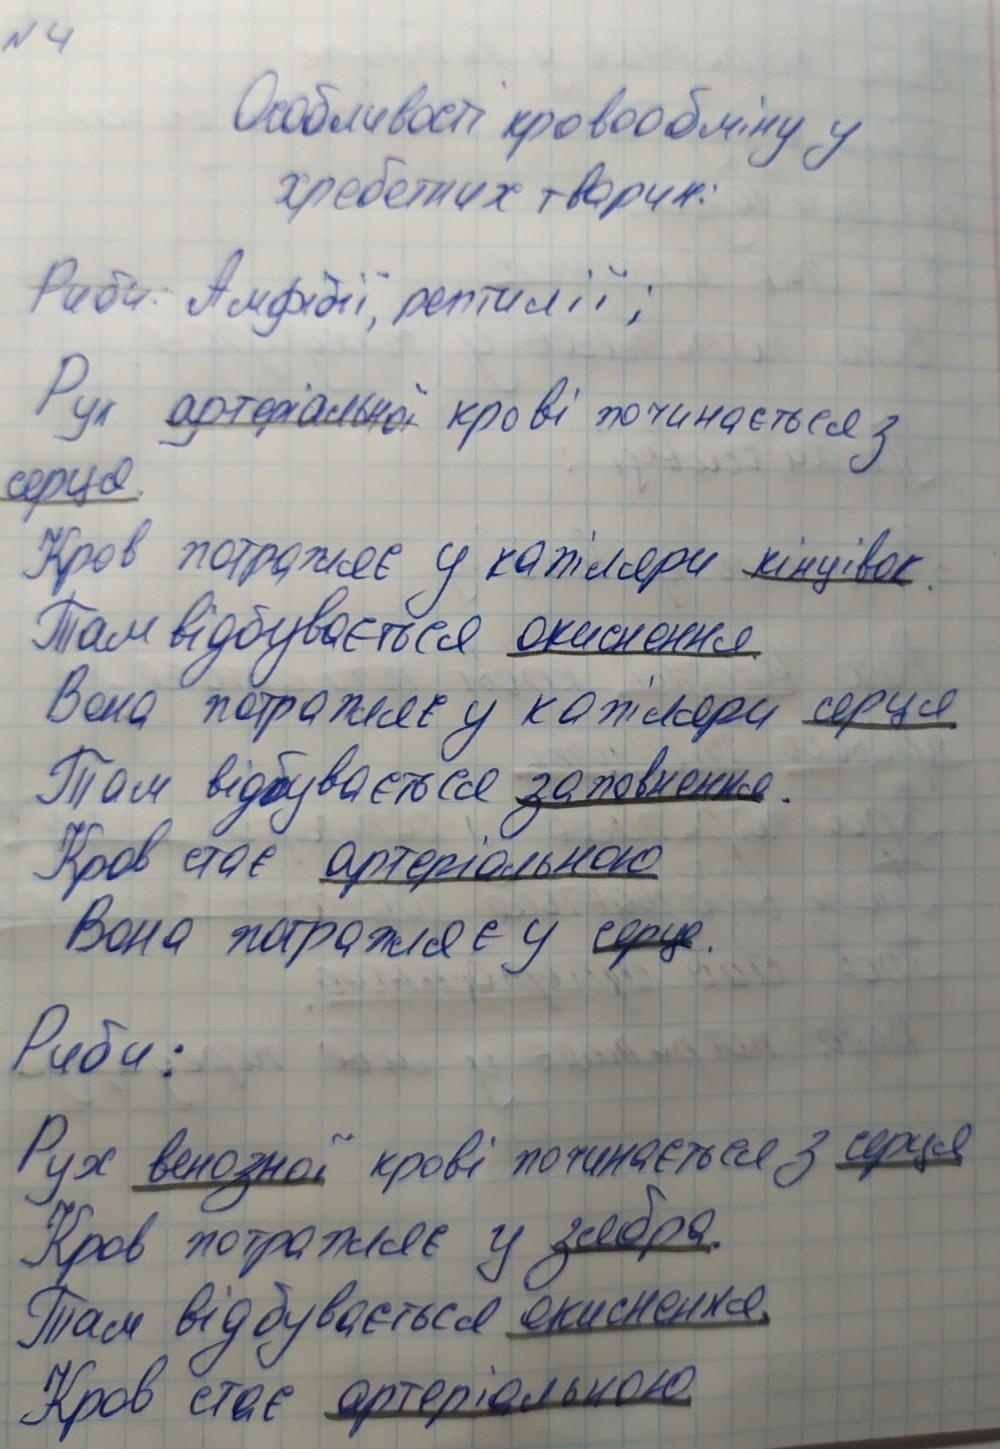 № 4
Особливості кровообміну у
хребетних тварин:
Риби. Амфібії, рептилії;
Рух артеріальної крові починається з
серця.
Кров потрапляє у капіляри кінцівок.
Там відбувається окиснення.
Вона потрапляє у капіляри серця
Там відбувається заповнення.
Кров стає артеріальною
Вона потрапляє у серце.
Риби:
Рух венозної крові починається з серця
Кров потрапляє у зябра.
Там відбувається окиснення.
Кров стає артеріальною